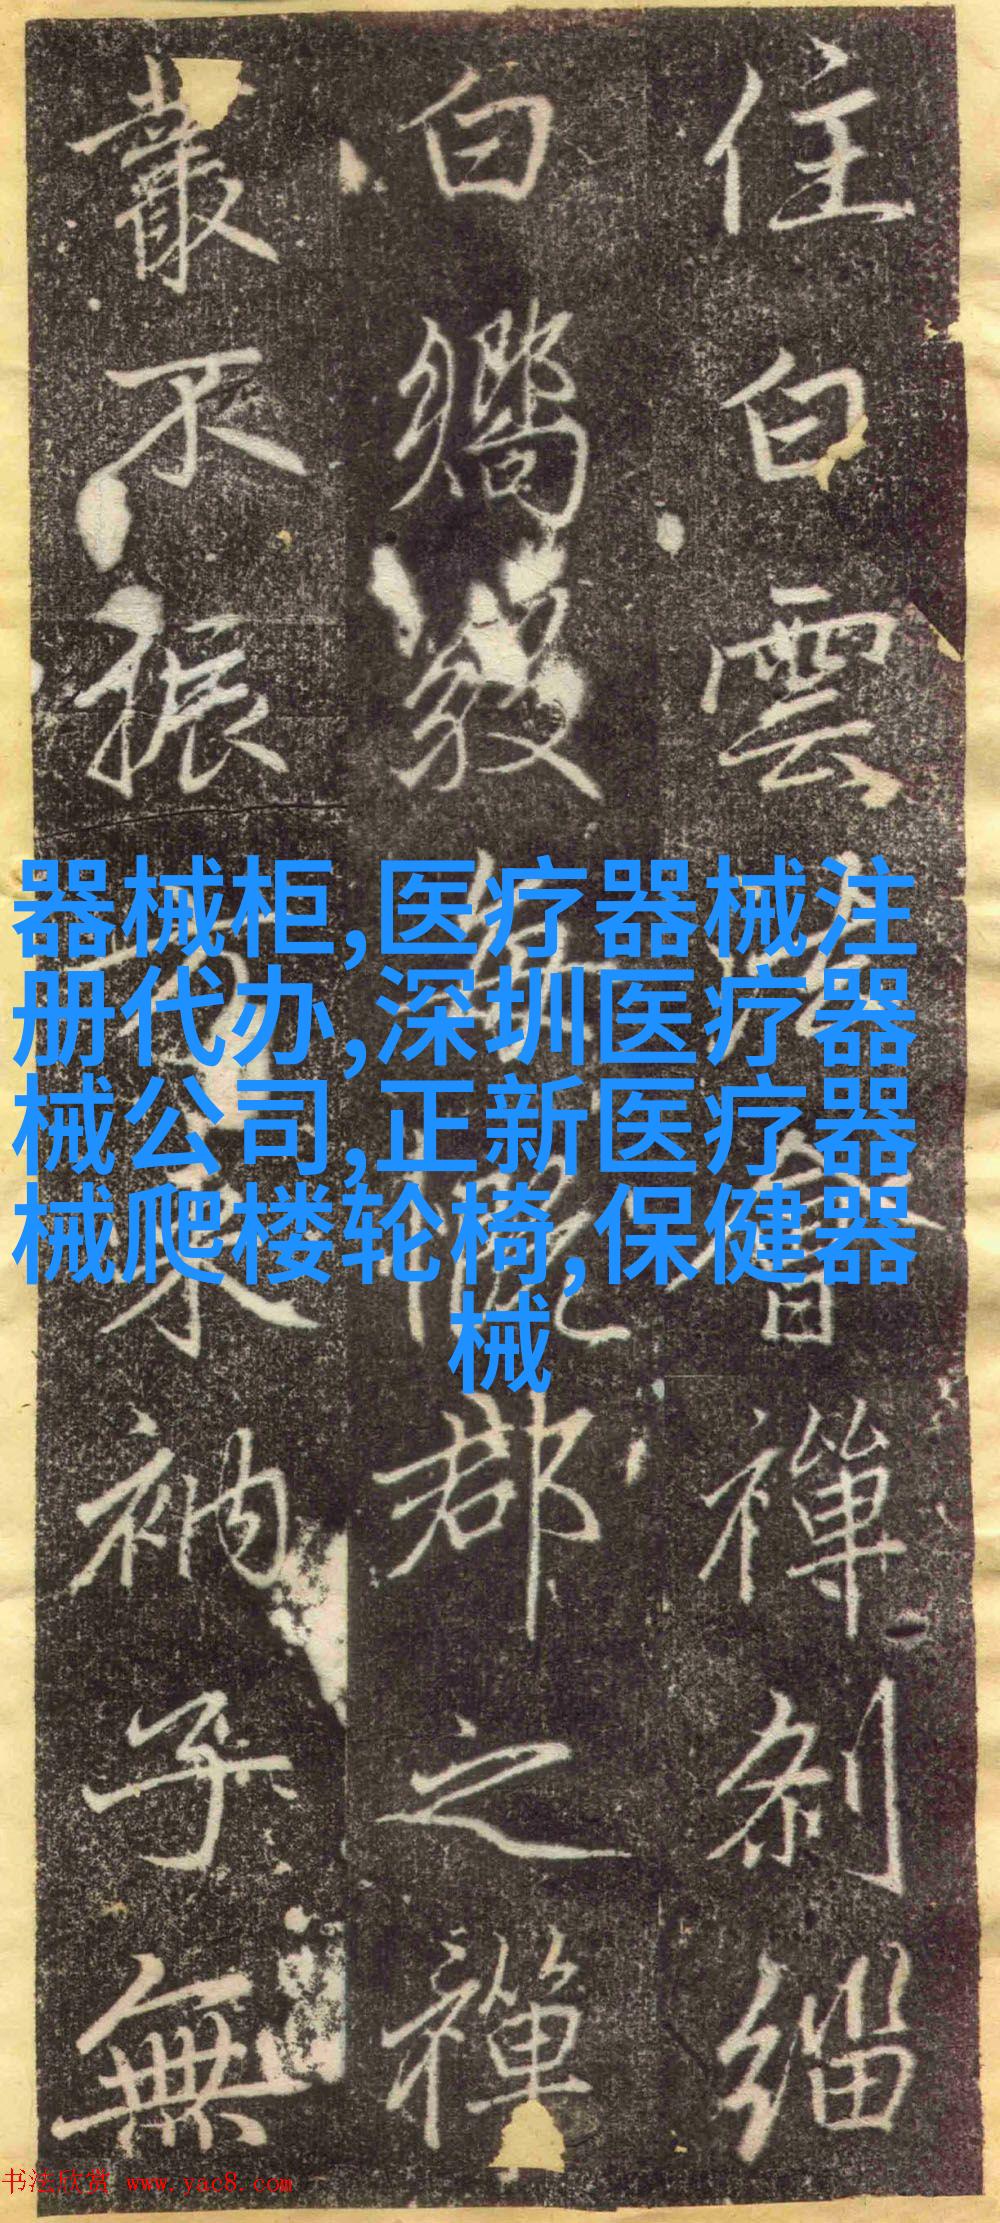 住白雲會禪剎緇
白郡之禪
叢不振衲子無
器械柜,医疗器械注
册代办,深圳医疗器
械公司,正新医疗器
械爬楼轮椅,保健器
械
书法欣赏 www.yac8.com